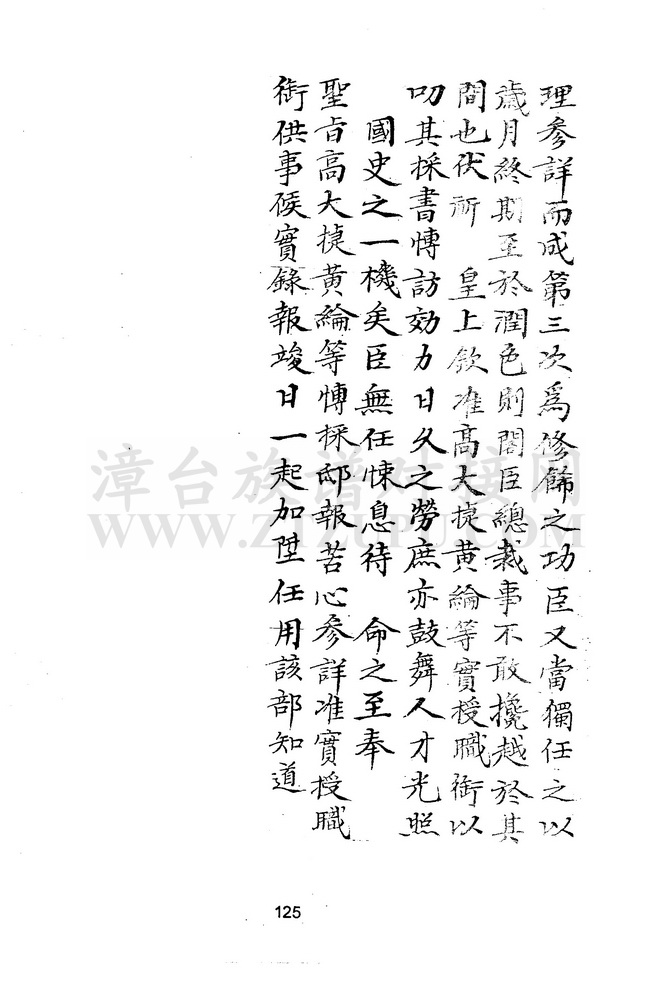 理參詳而成第三次爲修飾之功臣又當獨任之以
歲月終期至於潤色則閣臣總裁事不敢攙越於其
間也伏祈　皇上欽准高大㨗黄綸等實授職銜以
叨其採書博訪効力日久之勞庶亦鼓舞人才光照
國史之一機矣臣無任悚息待　命之至奉
聖旨高大㨗黄綸等博採邸報苦心參詳准實授職
銜供事候實錄報竣日一起加陞任用該部知道
漳台族谱对接网
WWW.ZTZUPU.COM
125